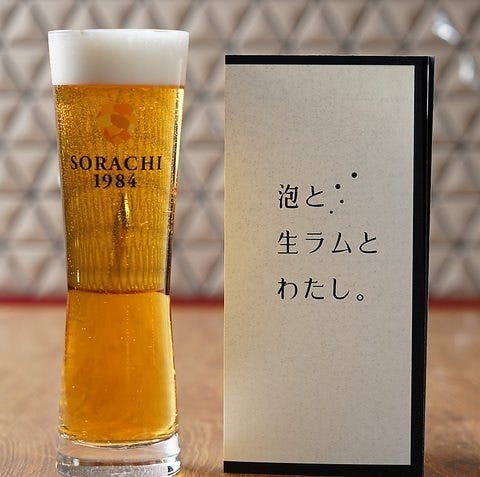 SORACHI
1984
泡と
生ラムと
わたし。